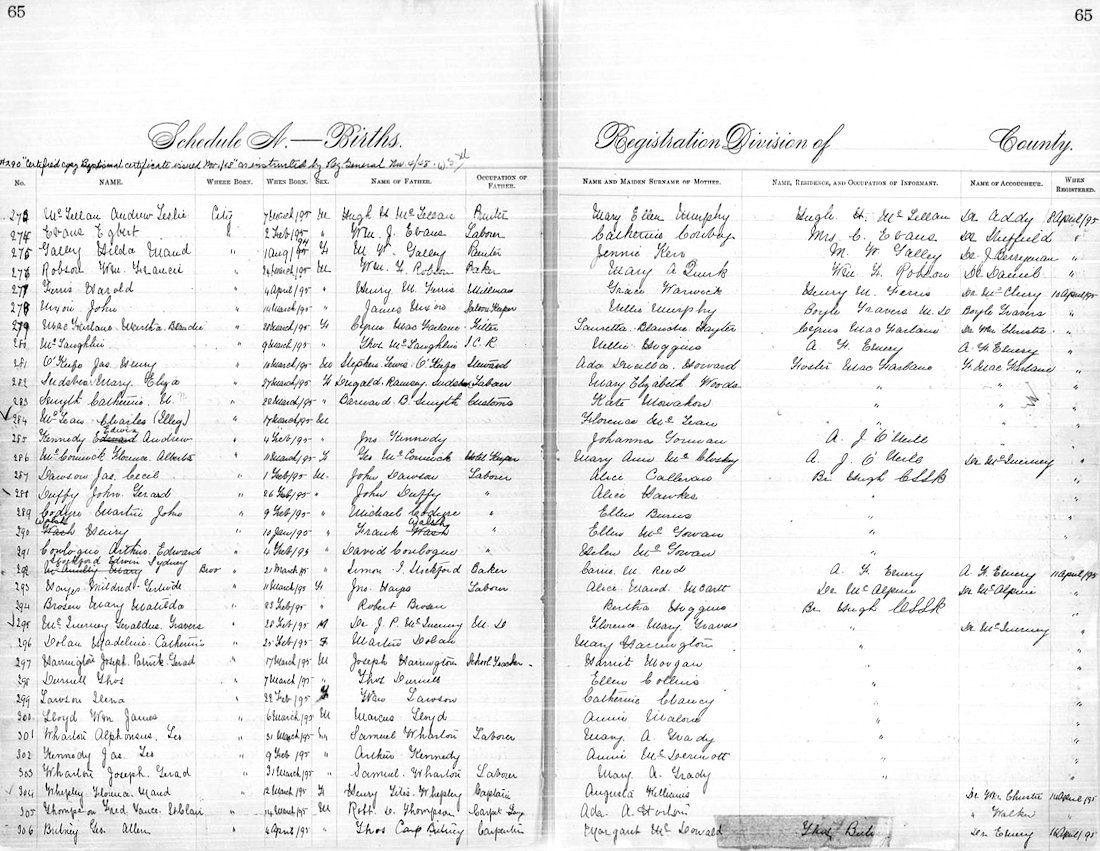 65
65
Schedule A.—Births.
Registration Division of County.
#290 "Certified copy Baptismal certificate issued Nov. 1/68" as instructed by Reg General Nov 4/68
No. NAME. WHERE BORN. WHEN BORN. SEX. NAME OF FATHER. OCCUPATION OF FATHER. NAME AND MAIDEN SURNAME OF MOTHER. NAME, RESIDENCE, AND OCCUPATION OF INFORMANT. NAME OF ACCOUCHEUR. WHEN REGISTERED.
273 McLellan Andrew Leslie City 7 March/95 M Hugh H McLellan Mary Ellen Murphy Hugh H. McLellan Dr Addy 8 April/95
274 Evans Egbert 2 Feb/95 " Wm J. Evans Labour Catherine Conboy Mrs C. Evans Dr Sheffield "
275 Galley Hilda Maud " 1 Aug/94 F M. W. Galley Jennie Kerr M. W. Galley Dr J Berryman "
276 Robson Wm. Francis " 26 March/95 M Wm. H Robson Baker Mary A Quirk Wm H. Robson Dr Daniel "
277 Ferris Harold " 4 April/95 " Henry M. Ferris Millman Grace Warwick Henry M. Ferris 10 April/95
278 John " 14 March/95 " James Saloon Keeper Nellie Murphy Boyle Travers M. D Boyle Travers "
279 MacFarlane Martha Blanche " 28 March/95 F Cyrus MacFarlane Lauretta Blanche Cyrus MacFarland Dr Wm Christie "
280 McLaughlin " 9 March/95 Thos McLaughlin I.C.R Nellie Huggins A. F. Emery A. F. Emery "
281 O'Keefe Jas. Henry " 10 March/95 M Stephen Lewis O'Keefe Steward Ada Drucilla Howard Foster MacFarlane F. MacFarlane "
282 Mary Eliza " 27 March/95 F Dugald Ramsay Labour Mary Elizabeth Woods " " "
283 Smyth Catherine M. " 22 March/95 Bernard B Smyth Customs Kate Monahan " "
284 McLean Charles (Illeg) " 17 March/95 M Florence McLean " "
285 Kennedy Edwin Andrew " 4 Feb/95 " Jno Kennedy Johanna Gorman A. J. O'Neill "
286 McCormick Florence Alberta " 11 March/95 F Geo McCormick Hotel Keeper Mary Ann McClusky A. J. O'Neill Dr McInerney "
287 Dawson Jas. Cecil " 1 Feb/95 M John Dawson Laborer Alice Callevan Br Hugh CSSR "
288 Duffy John Gerard " 26 Feb/95 " John Duffy " Alice Hawkes " "
289 Martin John " 9 Feb/95 " Michael Ellen Burns " "
290 Walsh Henry " 10 Jan/95 " Frank Walsh Ellen McGowan " "
291 Conlogue Arthur Edward " 4 Feb/95 " David Conlogue " Helen McGowan " "
292 Stockford Edwin Sydney 21 March/95 " Simon I. Stockford Baker Carrie M. Reid A. F. Emery A. F. Emery 11 April/95
293 Hayes Mildred Gertrude " 11 March/95 F Jno. Hayes Labour Alice Maud Dr McAlpine Dr McAlpine "
294 Mary Matilda " 23 Feb/95 " Robert Bertha Huggins Br Hugh CSSR
295 McInerney Geraldus Travers " 20 Feb/95 M Dr J. P. McInerney M D Florence Mary Travers " Dr McInerney "
296 Dolan Madeline Catherine " 25 Feb/95 F Martin Dolan Mary Harrington "
297 Harrington Joseph Patrick Gerad " 17 March/95 M Joseph Harrington School Teacher Harriet Morgan " "
298 Durnell Thos " 7 March/95 " Thos Durnell Ellen Collins " "
299 Lawson Lena " 22 Feb/95 F Wm Lawson Catherine Clancy " "
300 Lloyd Wm James " 6 March/95 M Marcus Lloyd Annie Malone " "
301 Wharton Alphonsus Leo " 31 March/95 Samuel Wharton Laborer Mary A. Grady " "
302 Kennedy Jas. Leo " 9 Feb/95 " Arthur Kennedy Annie McDermott " "
303 Wharton Joseph Gerad " 31 March/95 " Samuel Wharton Laborer Mary A. Grady " "
304 Whepley Florence Maud " 12 March/95 F Henry Whepley Captain Augusta Williams Dr Wm Christie 16 April/95
305 Thompson Fred Vance StClair " 14 March/95 M Robt. D. Thompson Ada A. Horton " Walker "
306 Geo Allen " 4 April/95 " Thos Carpenter Margaret McDonald Thos Dr Emery 16 April/95